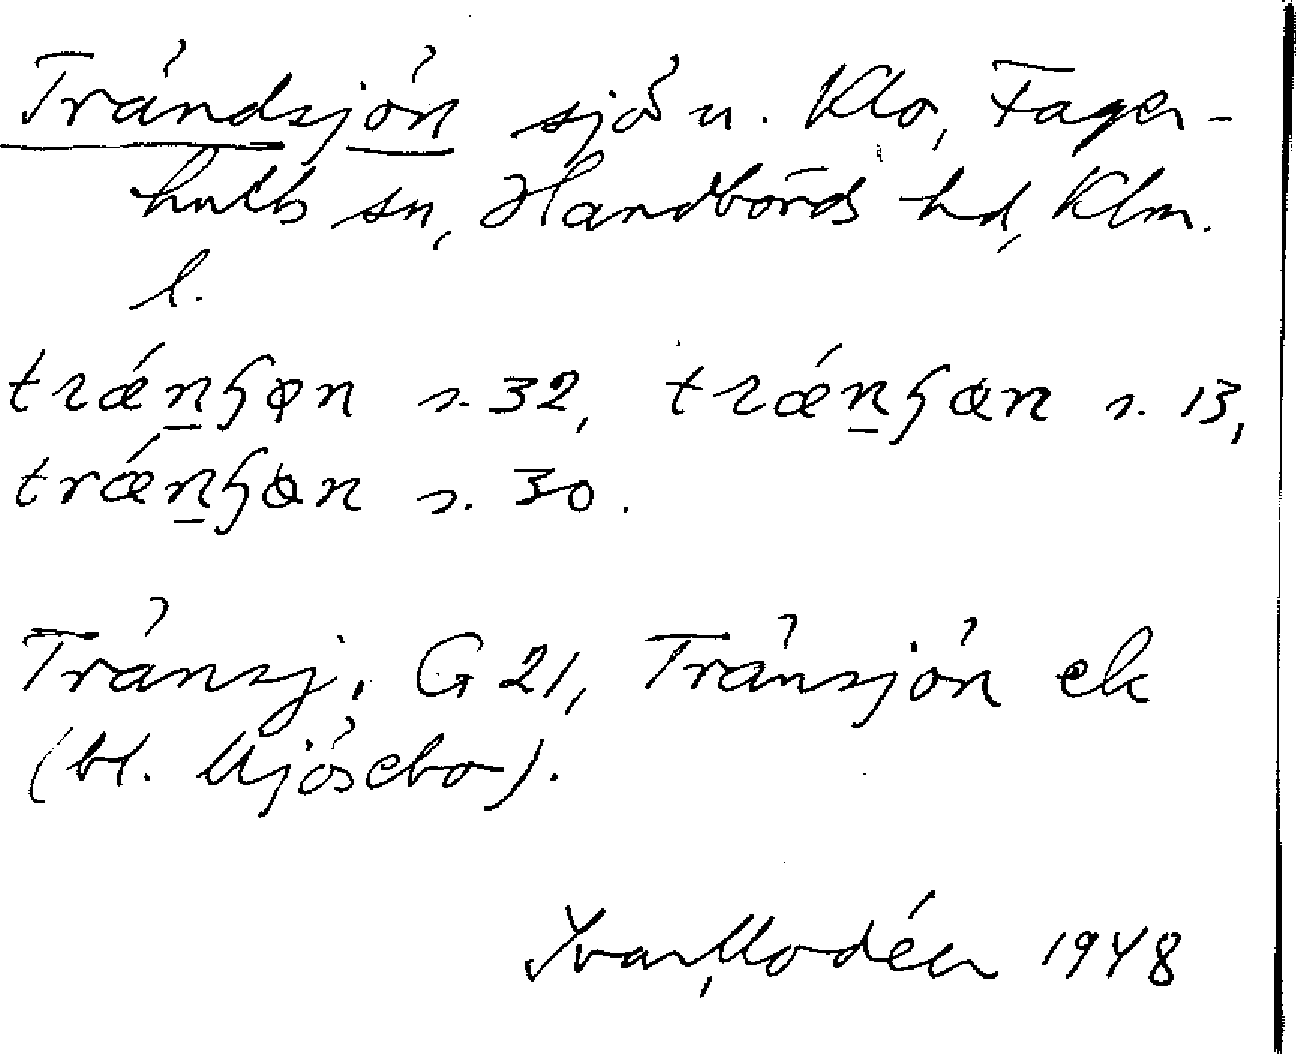 Trändsjön sjö u. Klo, Fager-
hults sn, Handbörds hd, Klm.
l.
trǽn̠ɧɵn s. 32, trǽn̠ɧɵn s. 13,
trǽn̠ɧɵn s. 30.
Tränsj. G 21, Tränsjön ek
(bl. Mjösebo).
Ivar Modéer 1948